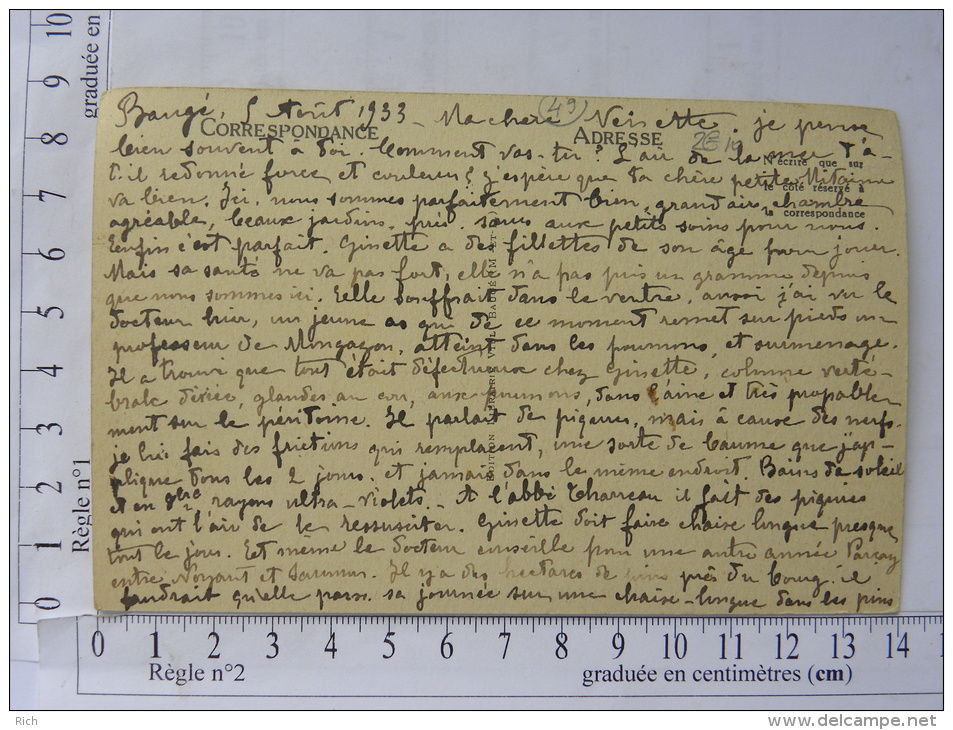 Baugé, 5 Août 1933 - Ma chère Neinette. je pense
(49)
CORRESPONDANCE
ADRESSE
2€
N'écrire que sur
le côté réservé à
la correspondance
bien souvent à toi. Comment vas-tu? L'air de la mer t'a-
t-il redonné force et couleurs? j'espère que ta chère petite Mitaine
va bien. Ici, nous sommes parfaitement bien, grand air, chambre
agréable, beaux jardins, près. Sœurs aux petits soins pour nous.
Enfin c'est parfait. Ginette a des fillettes de son âge pour jouer.
Mais sa santé ne va pas fort, elle n'a pas pris un gramme depuis
que nous sommes ici. Eelle souffrait dans le ventre, aussi j'ai vu le
docteur hier, un jeune as qui de ce moment remet sur pieds un
professeur de Mongazon, atteint dans les poumons, et surmenage.
Il a trouvé que tout était défectueux chez Ginette, colonne verté-
brale déviée, glandes au cou, aux poumons, dans l'aine et très probable-
ment sur le péritoine. Il parlait de piqures, mais à cause des nerfs.
je lui fais des frictions qui remplacent, une sorte de baume que j'ap-
plique tous les 2 jours, et jamais dans le même endroit. Bains de soleil
et en 8bre rayons ultra-violets. - A l'abbé Tharreau il fait des piqures
qui ont l'air de le ressusciter. Ginette doit faire chaise longue presque
tout le jour. Et même le docteur conseille pour une autre année Parçay
entre Noyant et Saumur. Il y a des hectares de pins près du bourg. il
faudrait qu'elle passe sa journée sur une chaise-longue dans les pins
EDITION LIBRAIRIE
BAUGÉ (M.-ET-L.)
Règle n°1
graduée en
0 1 2 3 4 5 6 7 8 9 10
0 1 2 3 4 5 6 7 8 9 10 11 12 13 14
Règle n°2
graduée en centimètres (cm)
Rich
http://www.delcampe.net